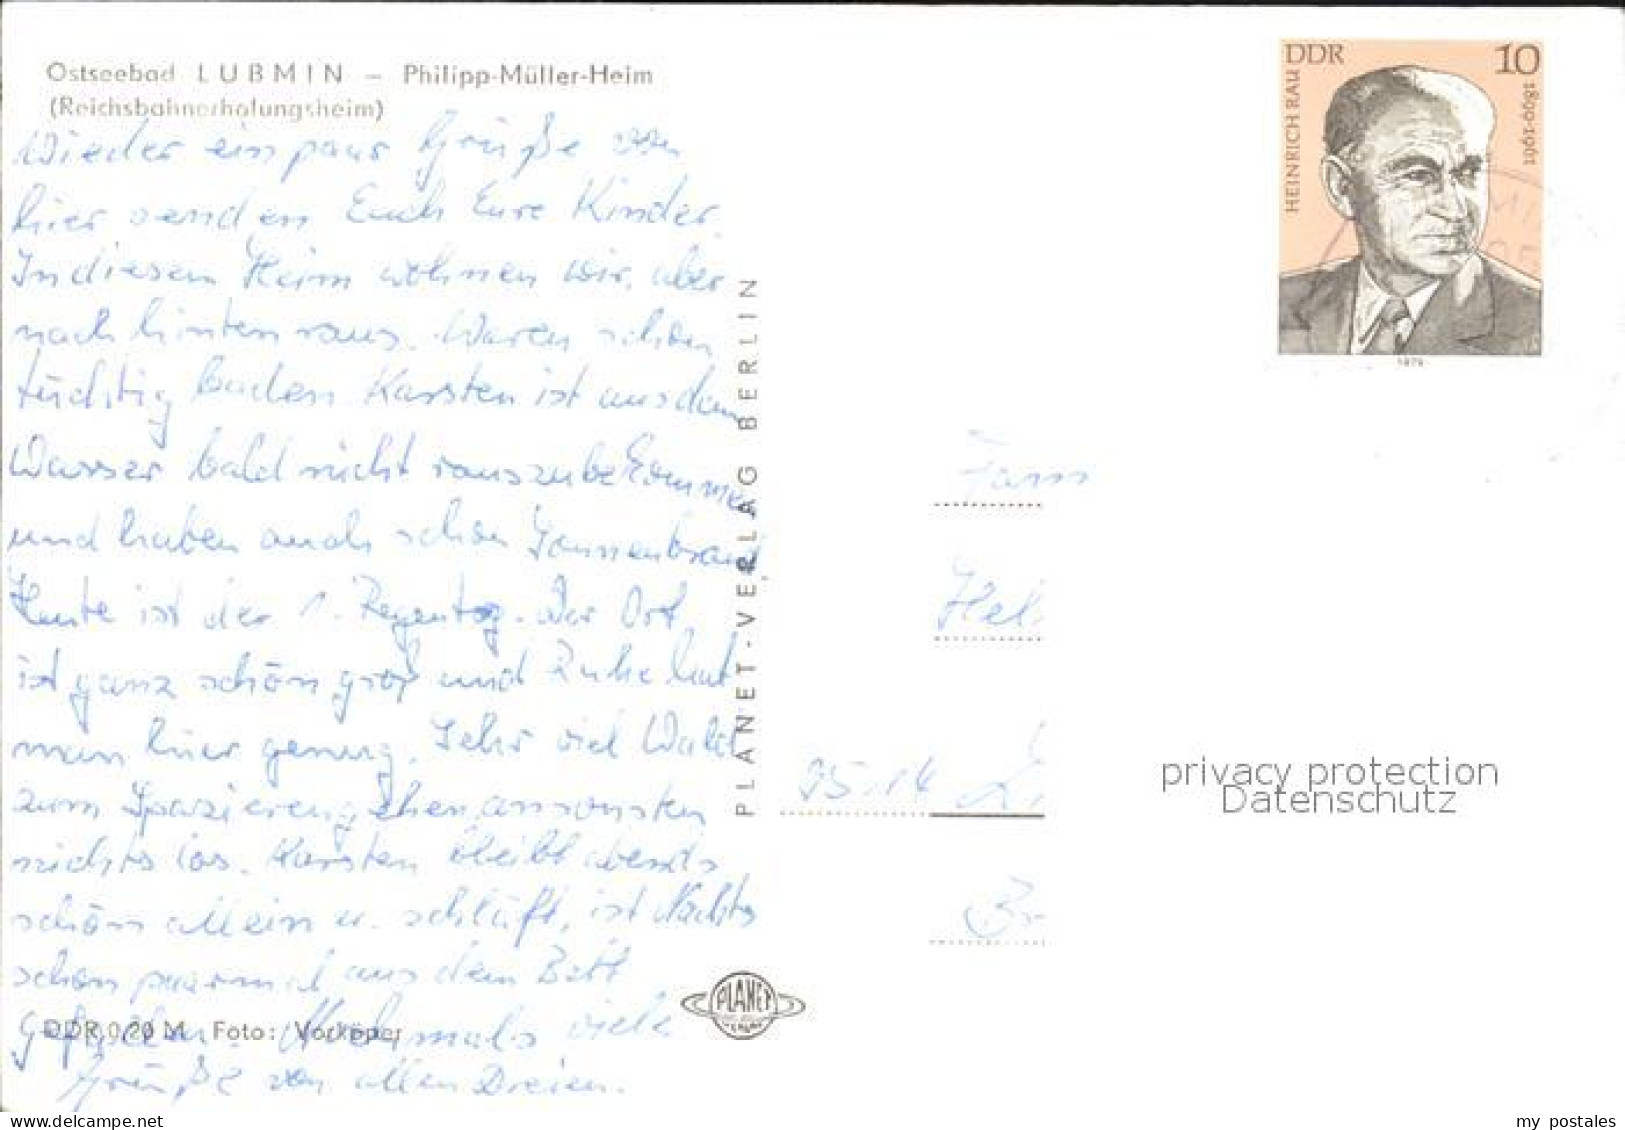 Ostseebad LUBMIN – Philipp-Müller-Heim
(Reichsbahnerholungsheim)
Wieder ein paar Grüße von
hier senden Euch Eure Kinder.
In diesem Heim wohnen wir, aber
nach hinten raus. Waren schon
tüchtig baden. Karsten ist aus dem
Wasser bald nicht rauszubekommen
und haben auch schon Sonnenbrand
Heute ist der 1. Regentag. Der Ort
ist ganz schön groß und Ruhe hat
man hier genug. Sehr viel Wald
zum Spazierengehen, ansonsten
nichts los. Karsten bleibt abends
schön allein u. schläft, ist Nachts
schon paarmal aus dem Bett
gefallen. Nochmals viele
Grüße von allen Dreien.
DDR 0,20 M Foto: Vorköper
PLANET-VERLAG BERLIN
PLANET
VERLAG
DDR 10
HEINRICH RAU
1899-1961
1979
Fam
Hel
95.14
privacy protection
Datenschutz
delcampe.net
my_postales